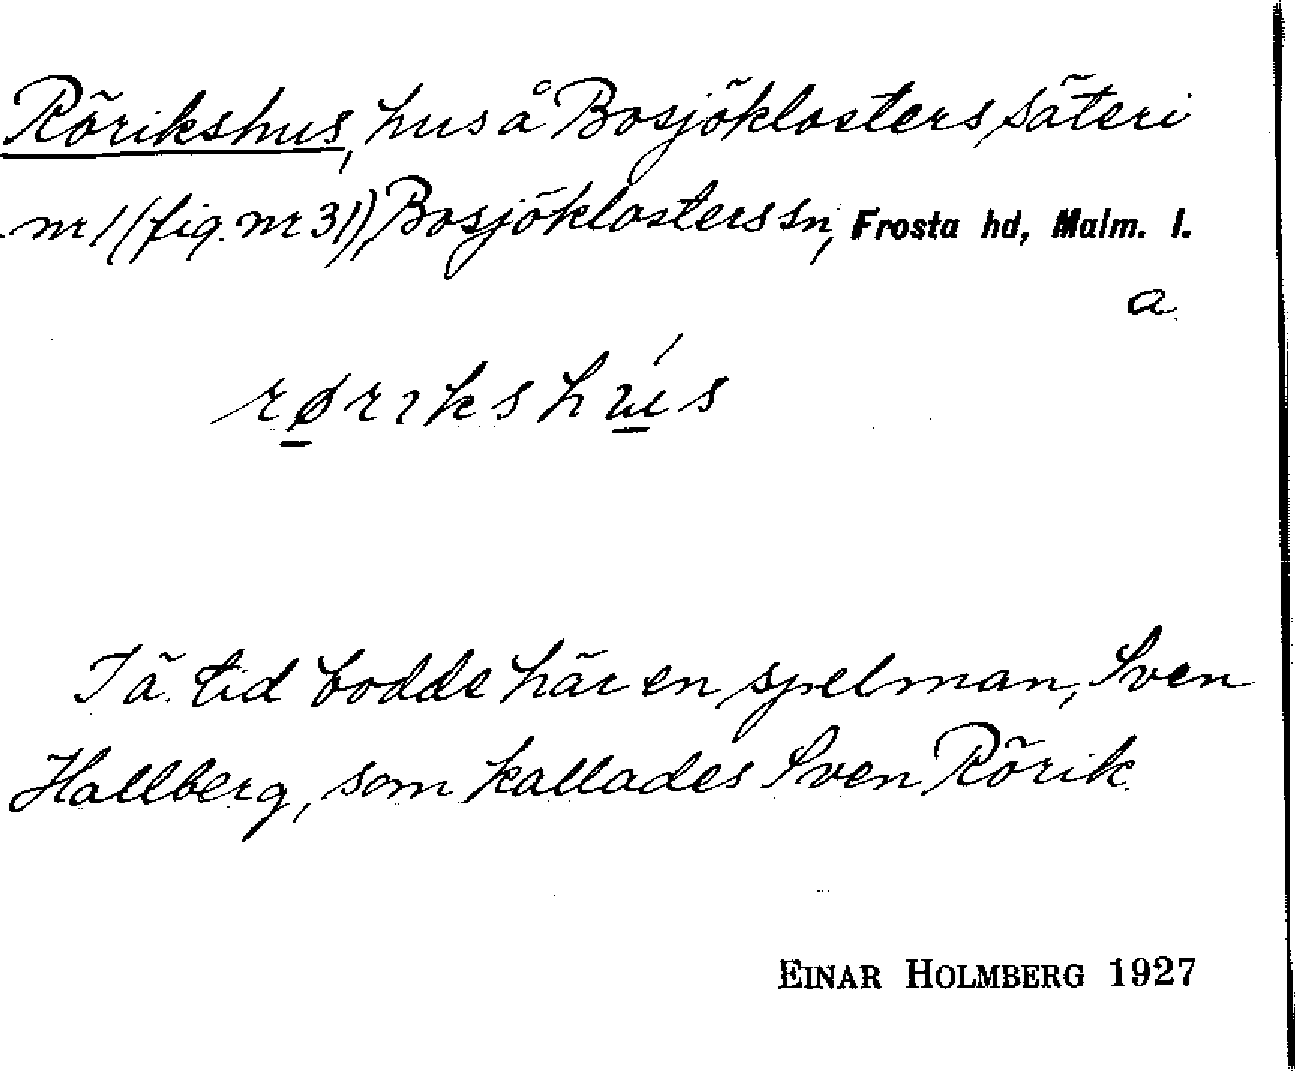 Rörikshus, hus å Bosjöklosters säteri
nr 1 (fig. nr 31)) Bosjöklosters sn, Frosta hd, Malm. l.
a
rørikshús
I ä. tid bodde här en spelman, Sven
Hallberg, som kallades Sven Rörik
EINAR HOLMBERG 1927